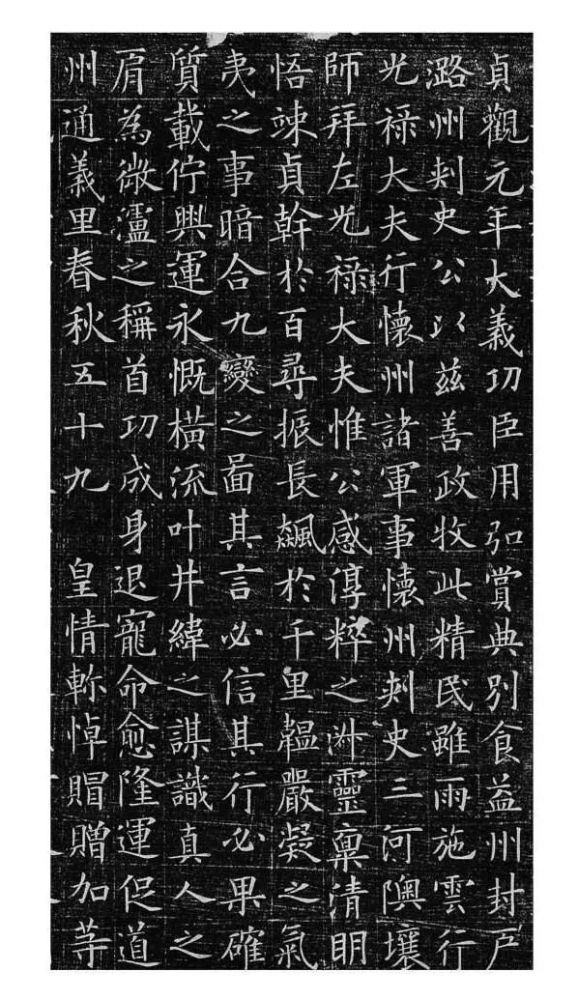 貞觀元年大義㓛臣用弘賞典別食益州封戶
潞州刾史公以茲善政牧此精民雖雨施雲行
光祿大夫行懷州諸軍事懷州刾史三河隩壤
師拜左光祿大夫惟公感淳粹之靈稟清明
悟竦貞幹於百尋振長飆於千里韞嚴凝之氣
夷之事暗合九變之啚其言必信其行必果確
質載佇興運永慨橫流叶井緯之謀識真人之
肩為微瀘之稱首㓛成身退寵命愈隆運促道
州通義里春秋五十九 皇情軫悼賵贈加等